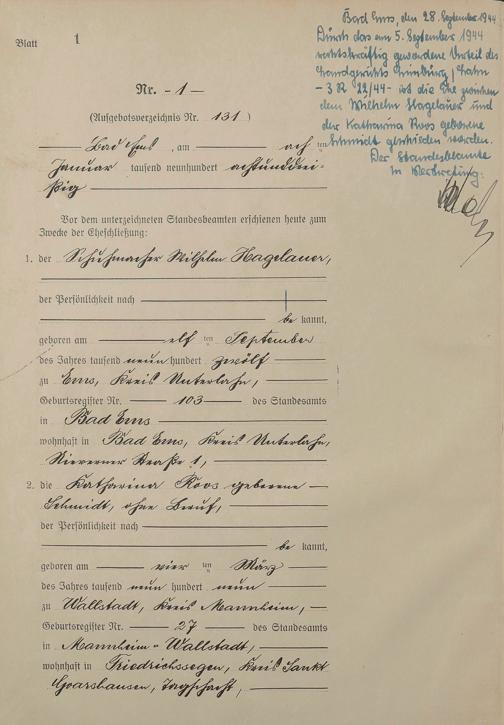 Bad Ems, den 28. September 1944
Durch das am 5. September 1944
rechtskräftig gewordene Urteil des
Landgerichts Limburg/Lahn
- 3 R 22/44 - ist die Ehe zwischen
dem Wilhelm Hagelauer und
der Katharina Roos geborene
Schmidt geschieden worden.
Der Standesbeamte
In Vertretung:
Blatt 1
Nr. - 1 -
(Aufgebotsverzeichnis Nr. 131.)
Bad Ems, am acht ten
Januar tausend neunhundert achtunddrei-
ßig
Vor dem unterzeichneten Standesbeamten erschienen heute zum
Zwecke der Eheschließung:
1. der Schuhmacher Wilhelm Hagelauer,
der Persönlichkeit nach
be kannt,
geboren am elf ten September
des Jahres tausend neun hundert zwölf
zu Ems, Kreis Unterlahn,
Geburtsregister Nr. 103 des Standesamts
in Bad Ems
wohnhaft in Bad Ems, Kreis Unterlahn,
Nieverner Straße 1,
2. die Katharina Roos geborene
Schmidt, ohne Beruf,
der Persönlichkeit nach
be kannt,
geboren am vier ten März
des Jahres tausend neun hundert neun
zu Wallstadt, Kreis Mannheim,
Geburtsregister Nr. 27 des Standesamts
in Mannheim-Wallstadt,
wohnhaft in Friedrichssegen, Kreis Sankt
Goarshausen, Tagschacht,